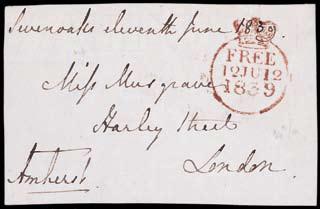 Sevenoaks eleventh June 1839
FREE
12 JU 12
1839
Miss Musgrave
Harley Street
London.
Amherst